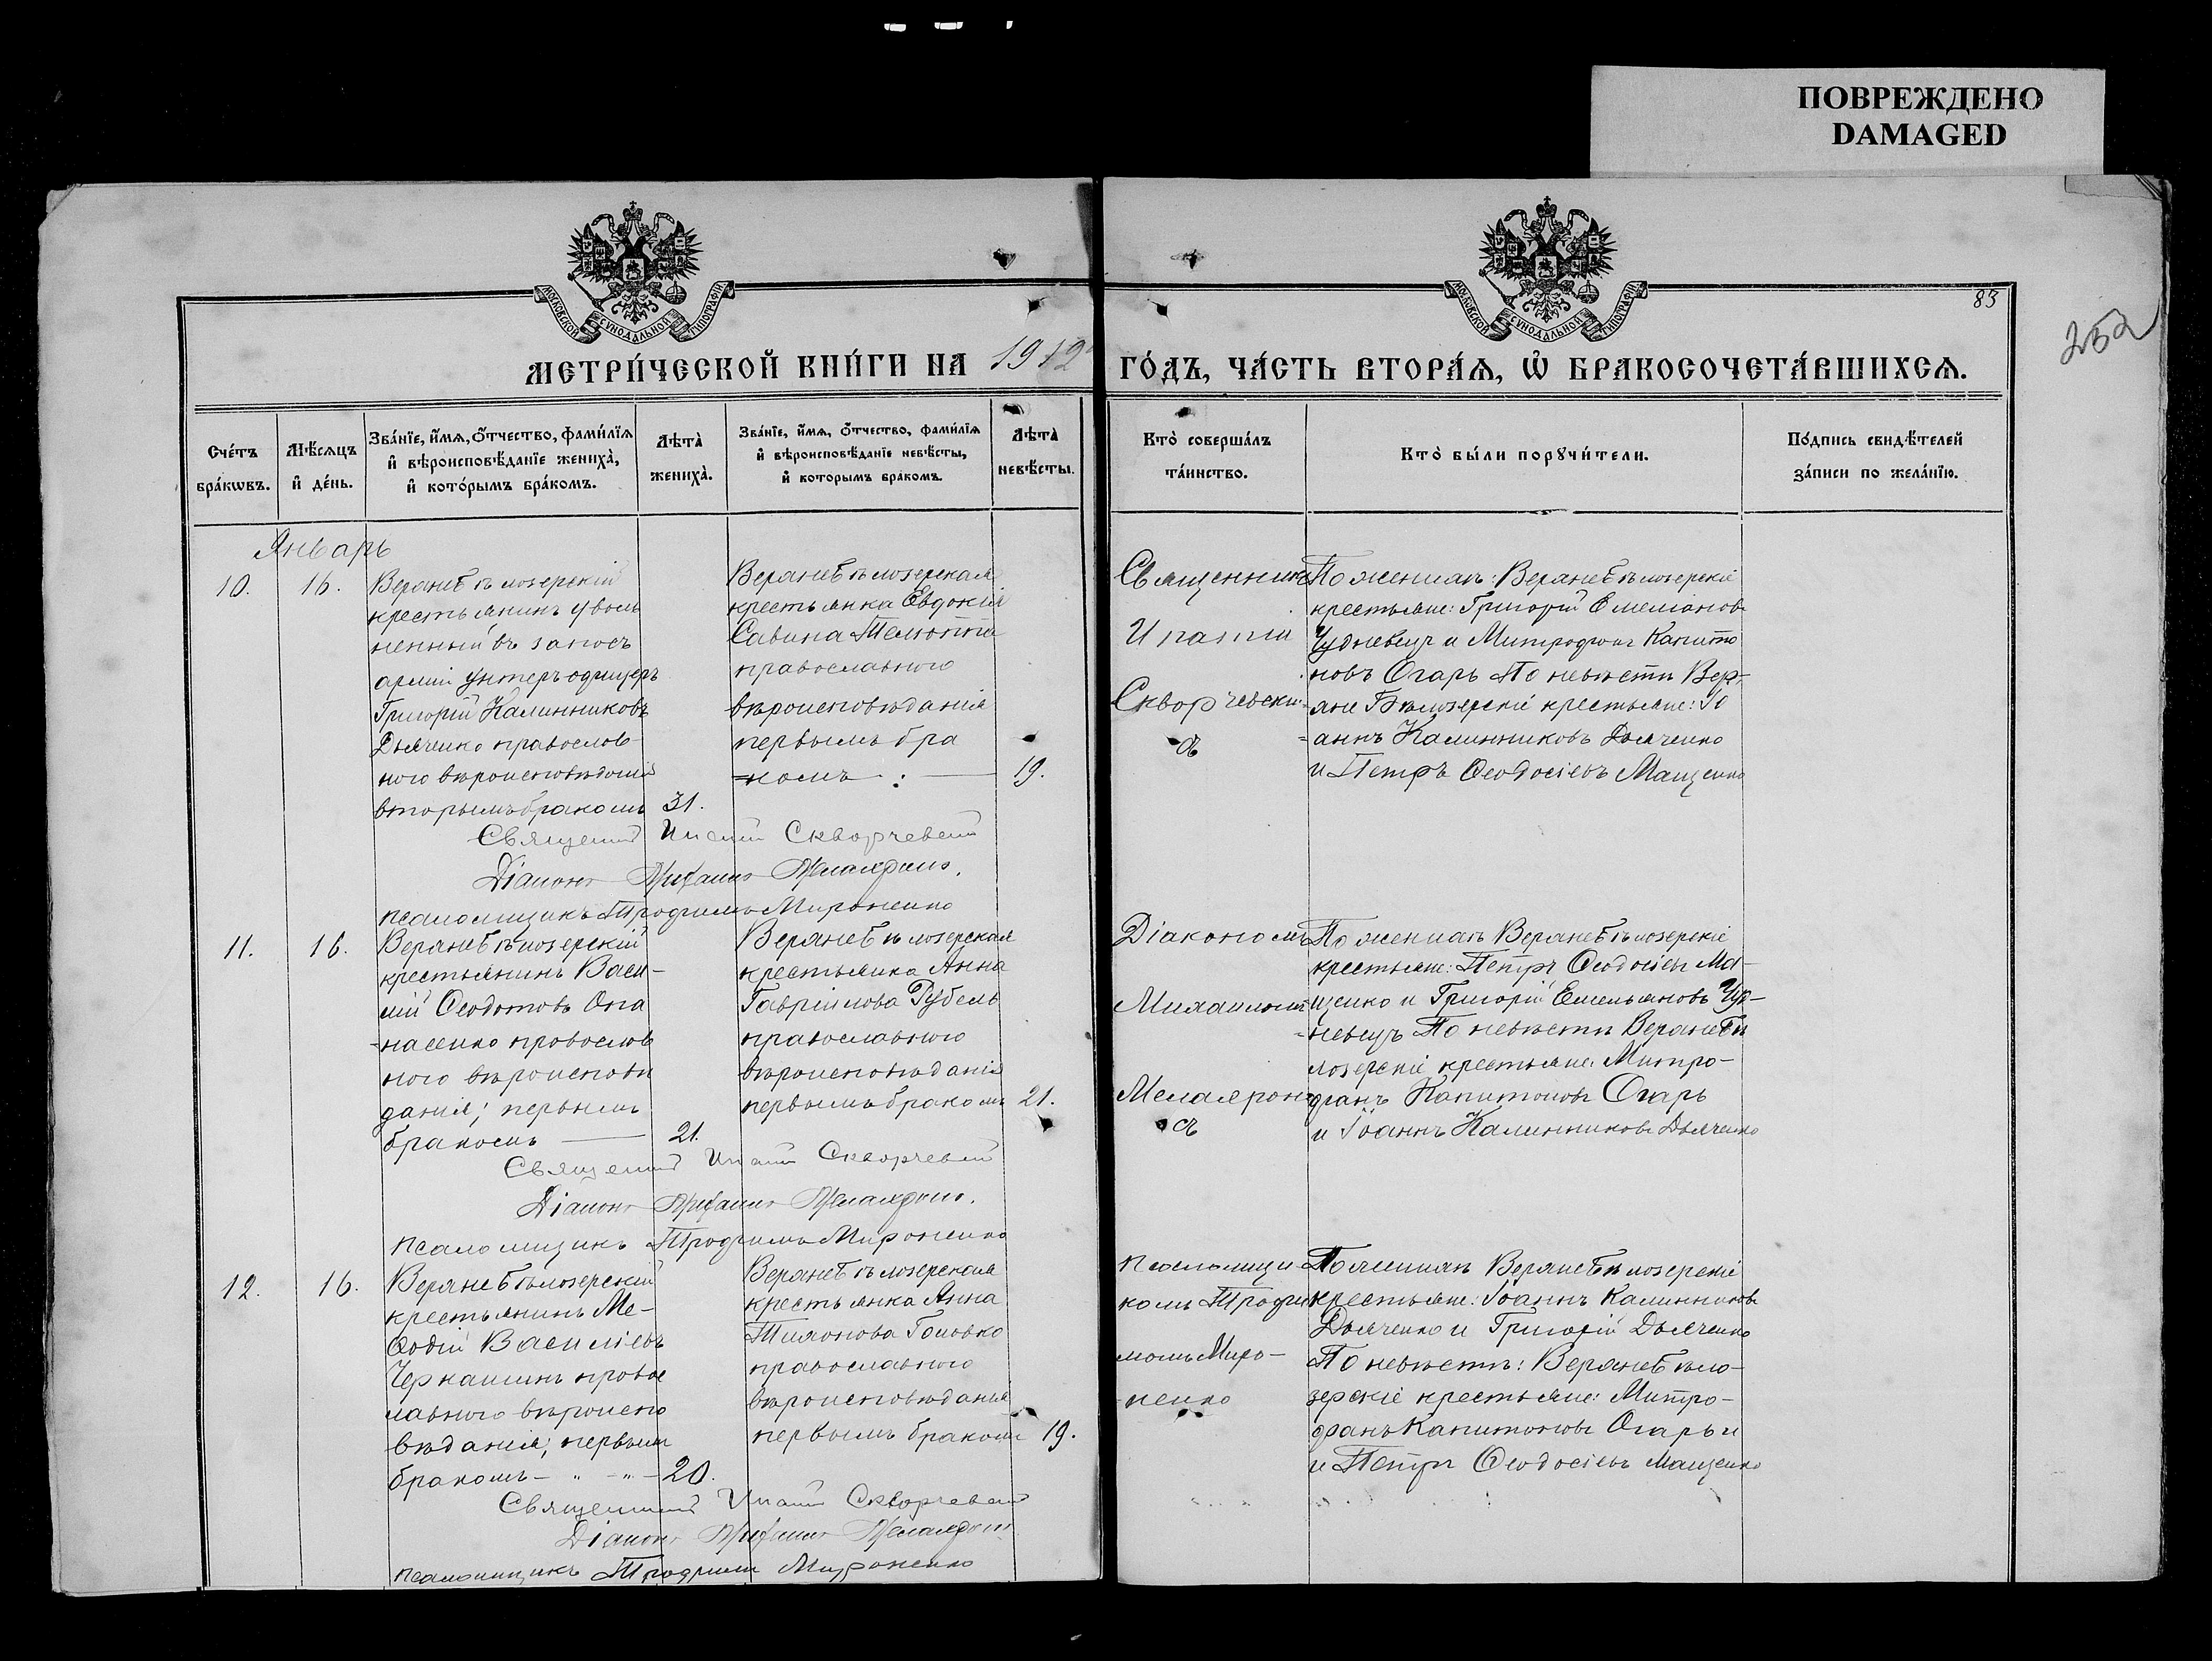 ПОВРЕЖДЕНО
DAMAGED
83
252
МОСКОВСКОЙ СѴНОДАЛЬНОЙ ТИПОГРАФІИ
МОСКОВСКОЙ СѴНОДАЛЬНОЙ ТИПОГРАФІИ
МЕТРИ́ЧЕСКОЙ КНИ́ГИ НА 1912 ГО́ДЪ, ЧА́СТЬ ВТОРА́Ѧ, Ѡ҆ БРАКОСОЧЕТА́ВШИХСѦ.
Сче́тъ
бра́кѡвъ.
Мѣ́сѧцъ
и҆ де́нь.
Зва́нїе, и҆́мѧ, ѻ҆́тчество, фами́лїѧ
и҆ вѣроисповѣ́данїе жениха̀,
и҆ кото́рымъ бра́комъ.
Лѣта̀
жениха̀.
Зва́нїе, и҆́мѧ, ѻ҆́тчество, фами́лїѧ
и҆ вѣроисповѣ́данїе невѣ́сты,
и҆ которымъ бракомъ.
Лѣта̀
невѣ́сты.
Кто̀ соверша́лъ
та́инство.
Кто̀ бы́ли порꙋчи́тели.
По́дпись свидѣ́телей
за́писи по жела́нїю.
Январь
10.
16.
Верхнебѣлозерскій
крестьянинъ уволь
ненный въ запасъ
арміи унтеръ офицеръ
Григорій Калинниковъ
Дьяченко православ
ного вѣроисповѣданія
вторымъ бракомъ
31.
Верхнебѣлозерская
крестьянка Евдокія
Савина
православного
вѣроисповѣданія
первымъ бра
=комъ
19.
Священник
Ипатій
Скворчевски
=мъ По женихѣ: Верхнебѣлозерскіе
крестьяне: Григорій Емеліановъ
и Митрофанъ Капито
новъ Огарь По невѣстѣ Вер-
хне Бѣлозерскіе крестьяне: Іо
=аннъ Калинниковъ Дьяченко
и Петръ Ѳеодосіевъ Мащенко
Священник Ипатій Скворчевскій
Діаконъ Михаилъ
псаломщикъ Трофимъ Мироненко
11.
16.
Верхнебѣлозерскій
крестьянинъ Васи-
лій Ѳеодотовъ Опа
=насенко православ
ного вѣроисповѣ
данія; первымъ
бракомъ
21.
Верхнебѣлозерская
крестьянка Анна
Гавріилова Рубель
православного
вѣроисповѣданія
первымъ бракомъ
21.
Діакономъ
Михаиломъ
По женихѣ Верхнебѣлозерскіе
крестьяне: Петръ Ѳеодосіевъ Ма-
щенко и Григорій Емельяновъ
По невѣстѣ Верхнебѣ
лозерскіе крестьяне: Митро-
фанъ Капитоновъ Огарь
и Іоаннъ Калинниковъ Дьяченко
Священник Ипатій Скворчевскій
Діаконъ Михаилъ
псаломщикъ Трофимъ Мироненко
12.
16.
Верхнебѣлозерскій
крестьянинъ Ме-
ѳодій Василіевъ
правос
лавного вѣроиспо
вѣданія, первымъ
бракомъ
20.
Верхнебѣлозерская
крестьянка Анна
Тихонова Головко
православного
вѣроисповѣданія
первымъ бракомъ
19.
Псаломщи
комъ Трофи
момъ Миро-
ненко
По женихѣ Верхнебѣлозерскіе
крестьяне: Іоаннъ Калинниковъ
Дьяченко и Григорій Дьяченко
По невѣстѣ: Верхнебѣло-
зерскіе крестьяне: Митро-
фанъ Капитоновъ Огарь и
и Петръ Ѳеодосіевъ Мащенко
Священник Ипатій Скворчевскій
Діаконъ Михаилъ
псаломщикъ Трофимъ Мироненко